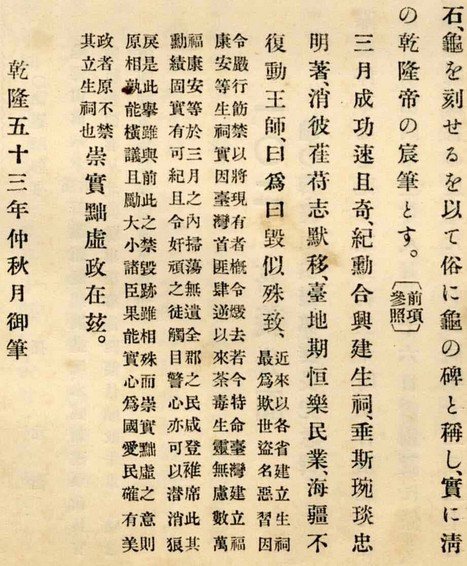 石、龜を刻せるを以て俗に龜の碑と稱し、實に淸
の乾隆帝の宸筆とす。〔前項參照〕
三月成功速且奇、紀勳合興建生祠、垂斯琬琰忠
明著、消彼荏苻志默移、臺地期恒樂民業、海疆不
復動王師、曰爲曰毀似殊致、
近來以各省建立生祠
最爲欺世盜名惡習因
令嚴行飭禁以將現有者槪令毀去若今特命臺灣建立福
康安等生祠實因臺灣首匪肆逆以來荼毒生靈無慮數萬
福康安等於三月之內掃蕩無遺全郡之民咸登袵席此其
勳績固實有可紀且令奸頑之徒觸目警心亦可以潛消狼
戾是此擧雖與前此之禁毀跡雖相殊而崇實黜虛之意則
原相孰能橫議且勵大小諸臣果能實心爲國愛民確有美
政者原不禁
其立生祠也
崇實黜虛政在玆。
乾隆五十三年仲秋月御筆